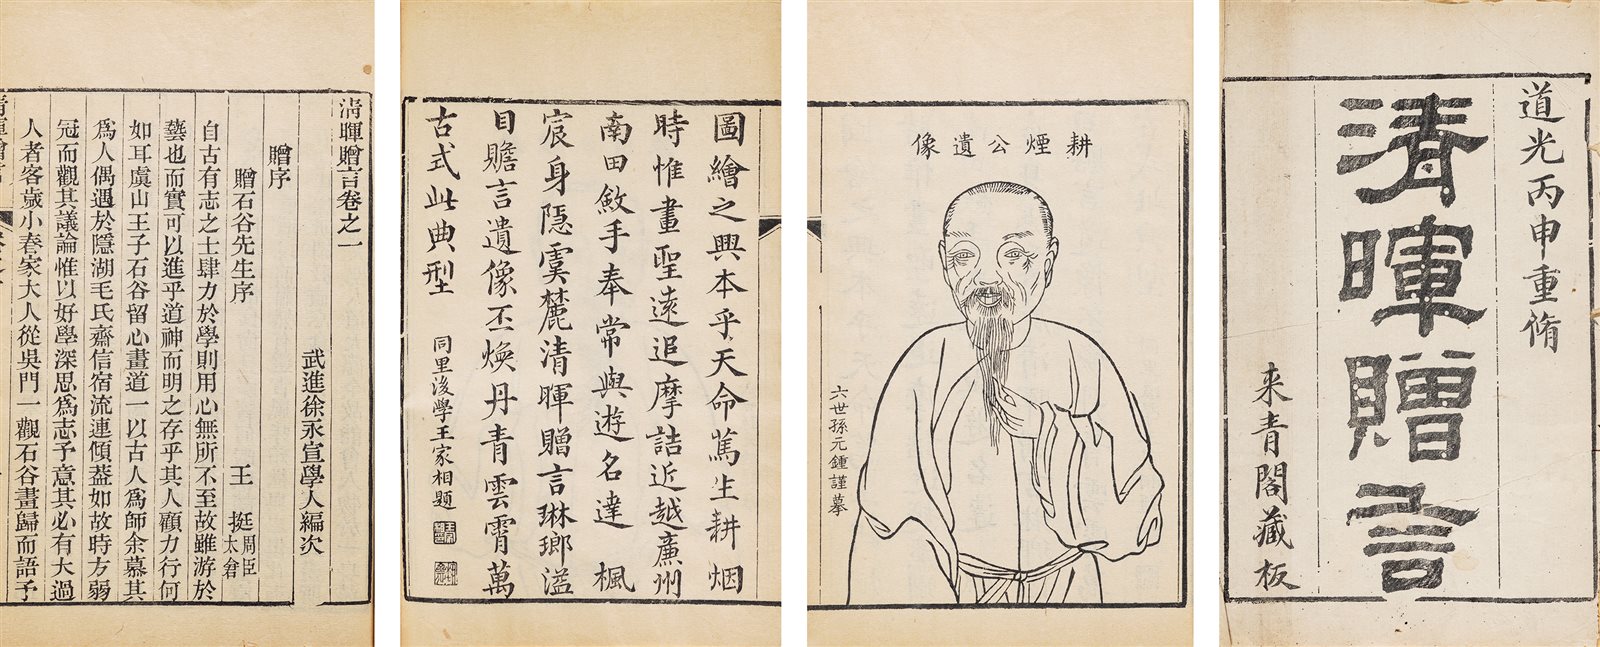 道光丙申重脩
清暉贈言
来青閣藏板
耕煙公遺像
六世孫元鍾謹摹
圖繪之興本乎天命篤生耕烟
時惟畫聖遠追摩詰近越廉州
南田斂手奉常與遊名達楓
宸身隱虞麓清暉贈言琳瑯溢
目瞻言遺像丕煥丹青雲霄萬
古式此典型
同里後學王家相題
清暉贈言卷之一
武進徐永宣學人編次
贈序
贈石谷先生序
王挺周臣太倉
自古有志之士肆力於學則用心無所不至故雖游於
藝也而實可以進乎道神而明之存乎其人顧力行何
如耳虞山王子石谷留心畫道一以古人爲師余慕其
爲人偶遇於隱湖毛氏齋信宿流連傾葢如故時方弱
冠而觀其議論惟以好學深思爲志予意其必有大過
人者客歲小春家大人從吳門一觀石谷畫歸而語予